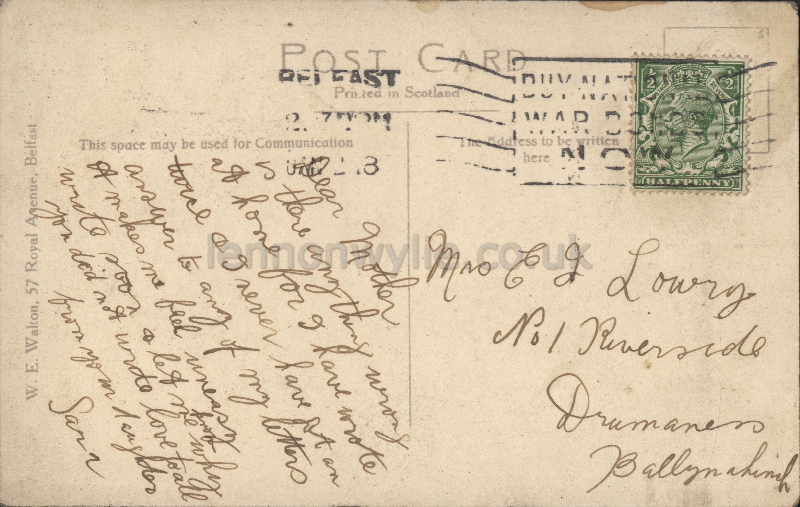 POST CARD
Printed in Scotland
BELFAST
PM
BUY NAT
WAR BO
NO
HALFPENNY
This space may be used for Communication
The Address to be written
here
W. E. Walton, 57 Royal Avenue, Belfast
Dear Mother
is there anything wrong
at home for I have wrote
twice & I never have got an
answer to any of my letters
it makes me feel uneasy
write soon & let me why
you did not write love to all
from your daughter
Sara
Mrs E J Lowry
No 1 Riverside
Drumaness
Ballynahinch
lennonwylie.co.uk